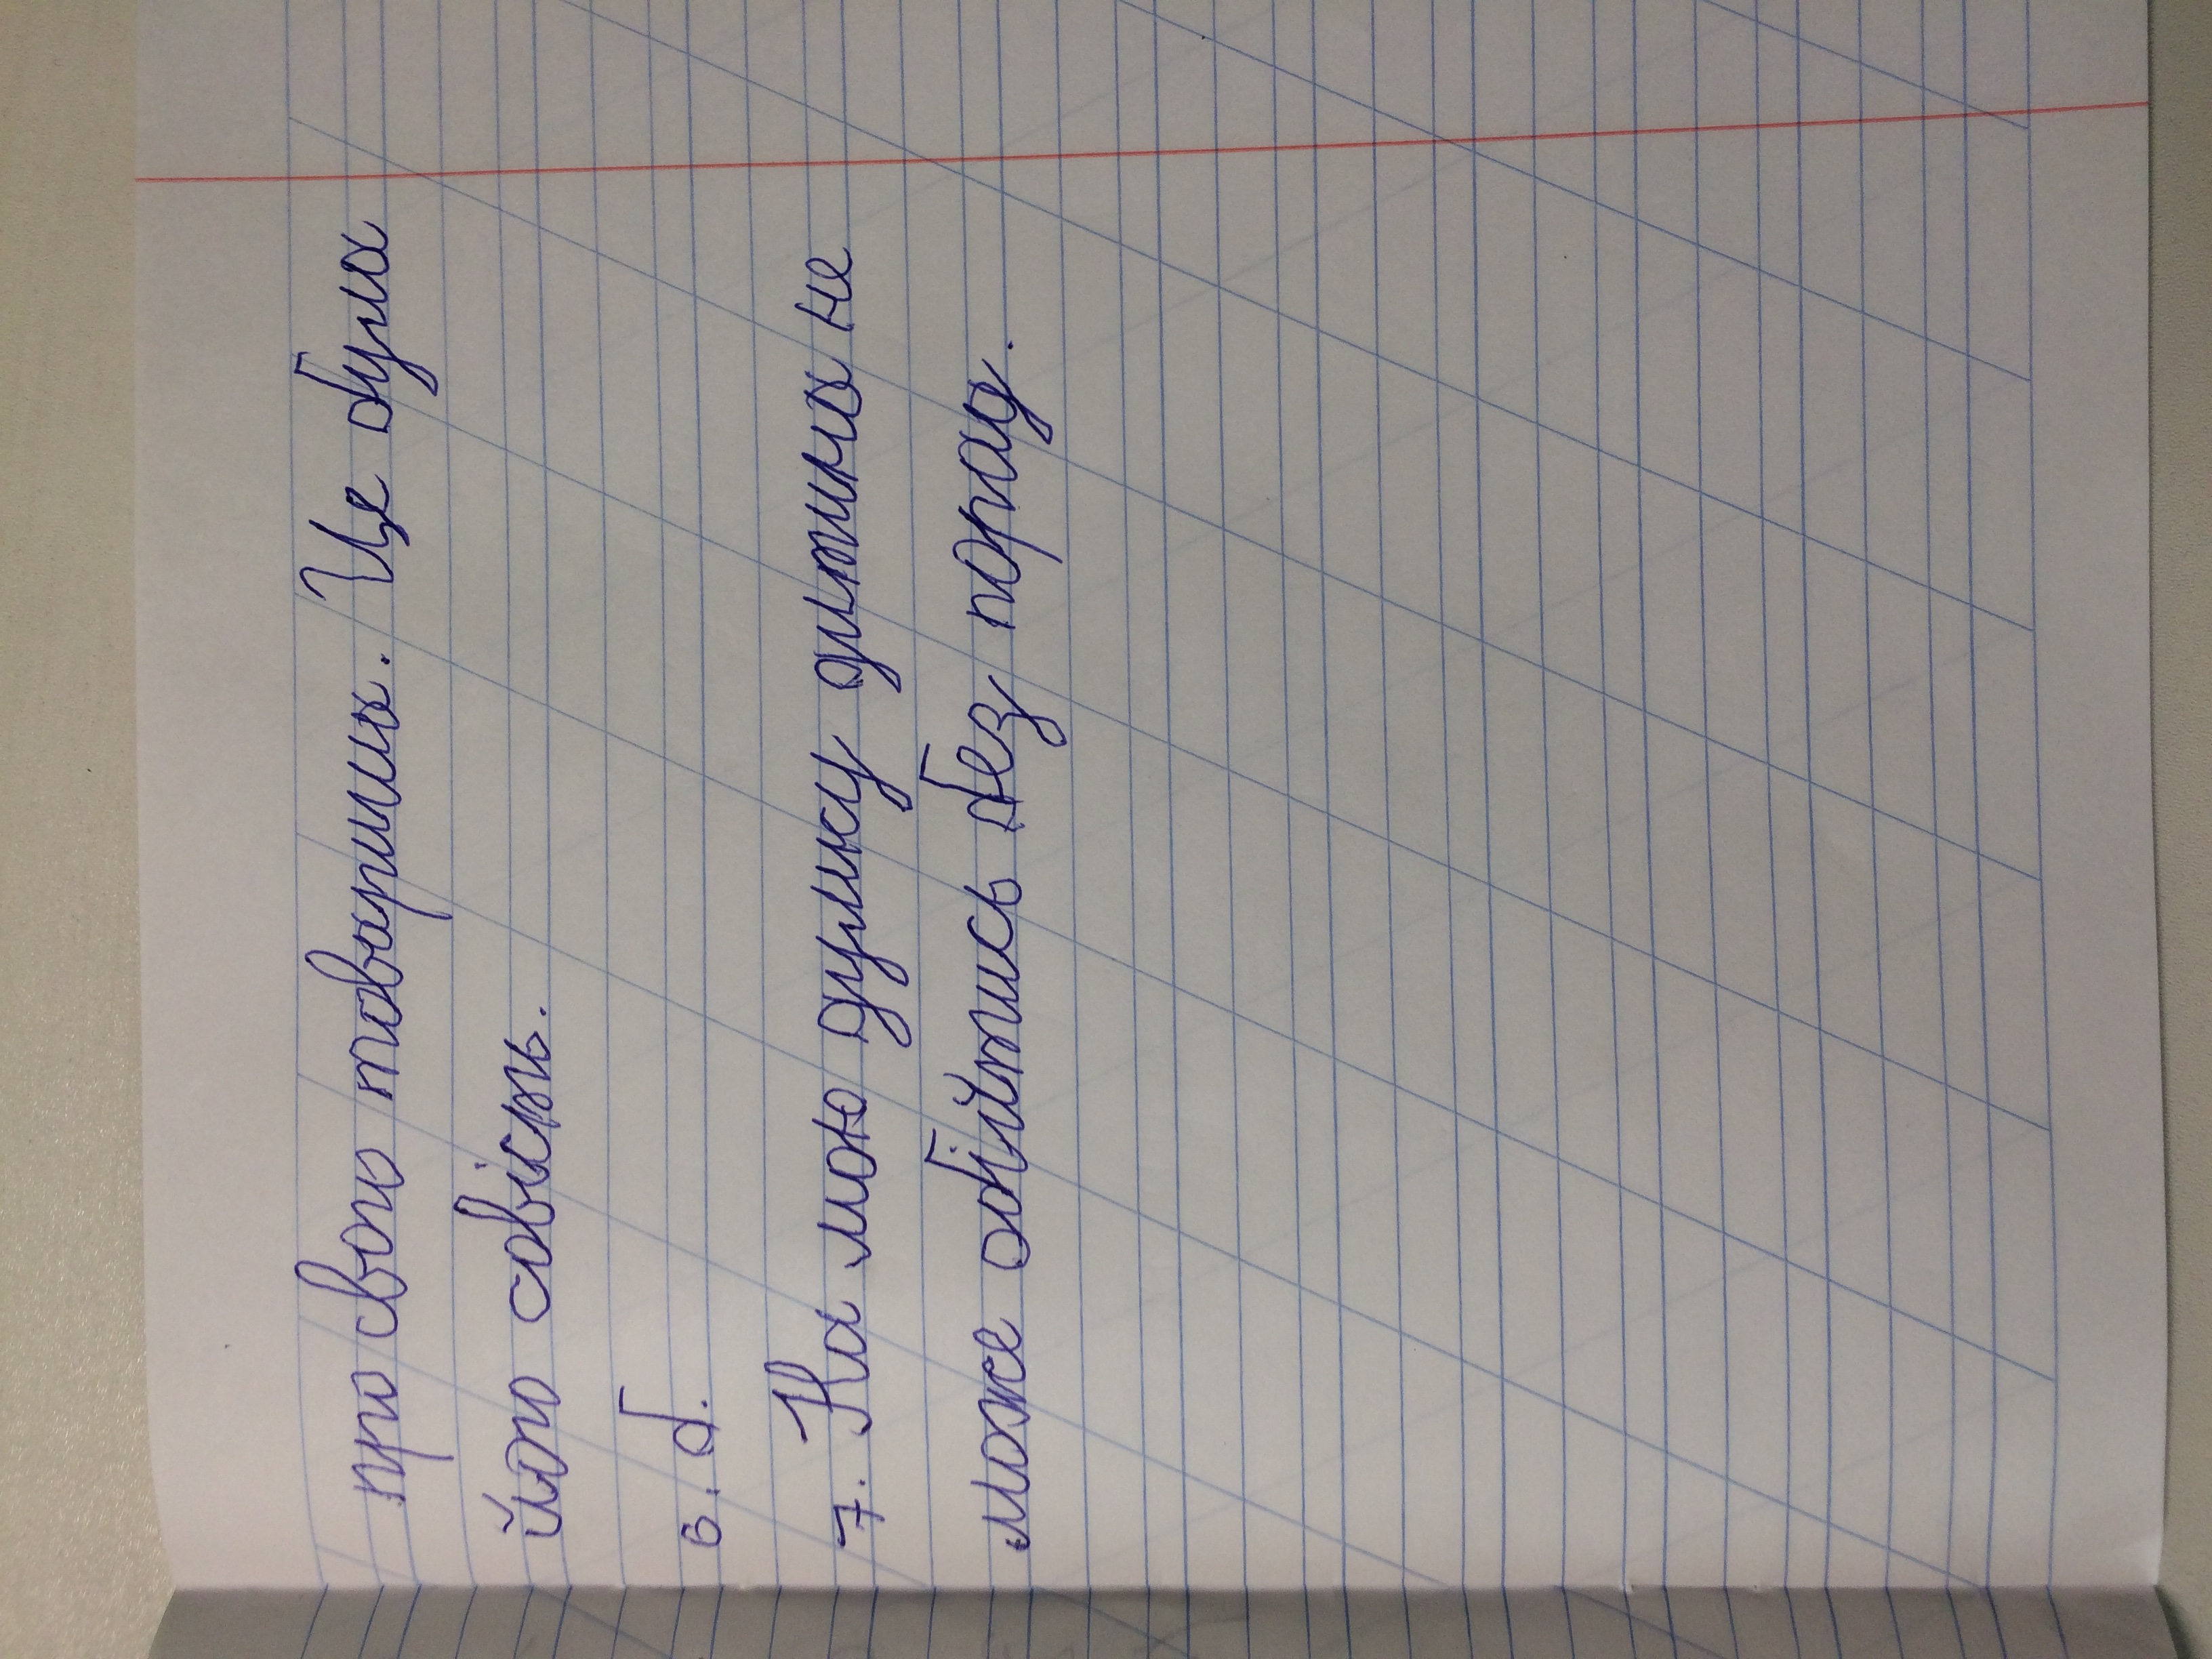 про свого товариша. Це була
його совість.
6. б.
7. На мою думку дитина не
може обійтись без порад.